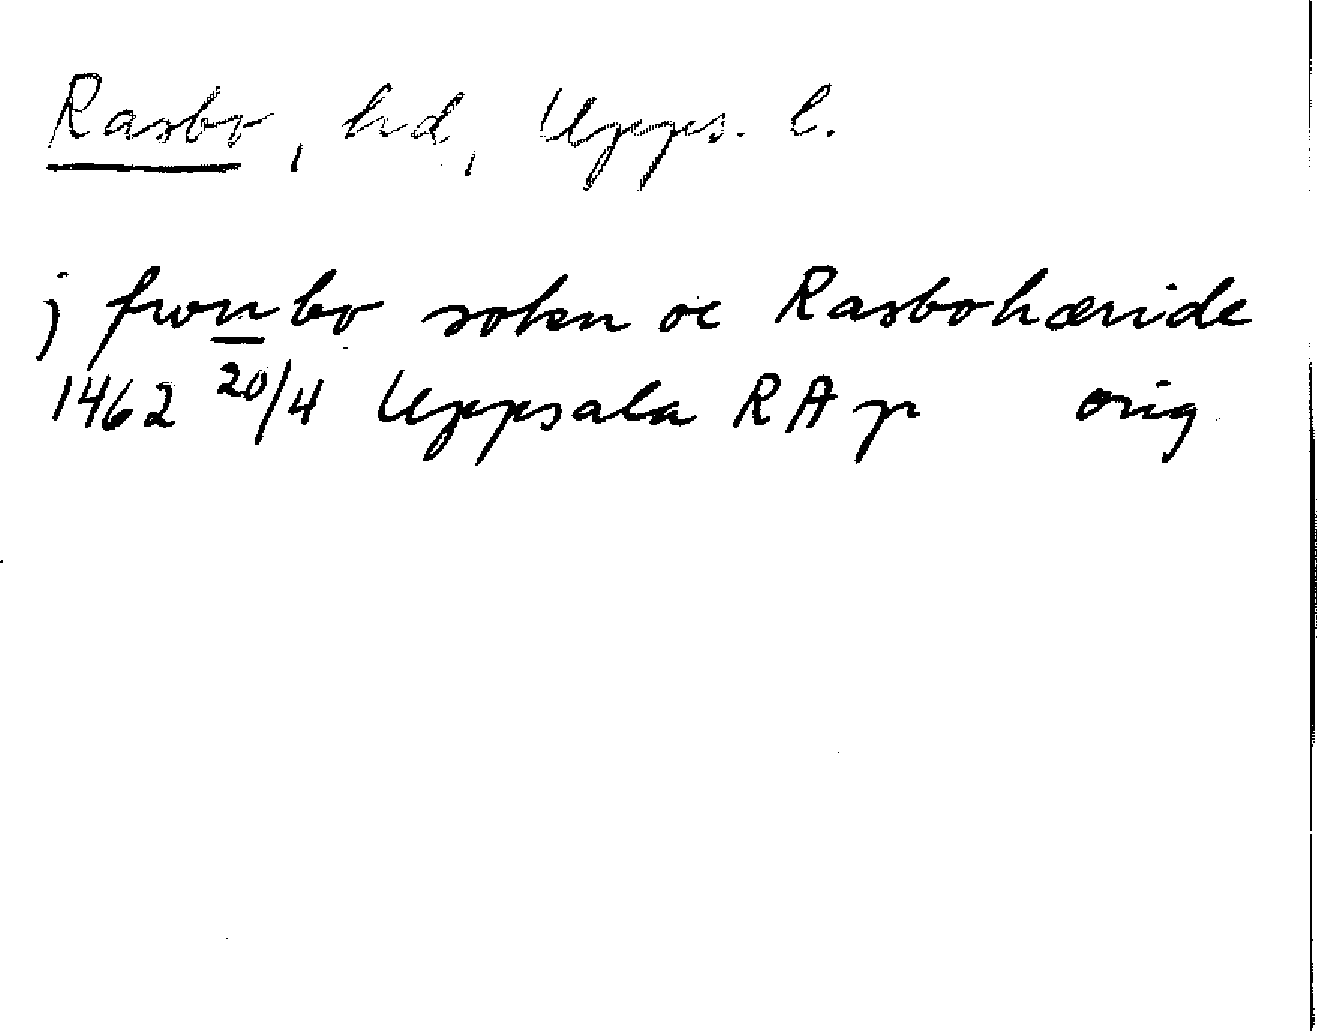 Rasbo, hd, Upps. l.
j frw<u>n</u>bo sokn oc Rasbohæride
1462 20/4 Uppsala RAp orig